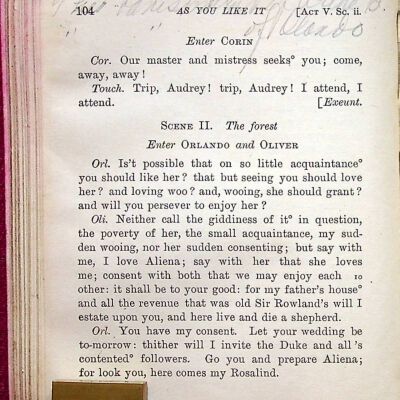 104 AS YOU LIKE IT [ACT V. SC. ii.
of Orlando
Enter CORIN
Cor. Our master and mistress seeks° you; come,
away, away!
Touch. Trip, Audrey! trip, Audrey! I attend, I
attend. [Exeunt.
SCENE II. The forest
Enter ORLANDO and OLIVER
Orl. Is't possible that on so little acquaintance°
you should like her? that but seeing you should love
her? and loving woo? and, wooing, she should grant?
and will you persever to enjoy her?
Oli. Neither call the giddiness of it° in question,
the poverty of her, the small acquaintance, my sud-
den wooing, nor her sudden consenting; but say with
me, I love Aliena; say with her that she loves
me; consent with both that we may enjoy each 10
other: it shall be to your good: for my father's house°
and all the revenue that was old Sir Rowland's will I
estate upon you, and here live and die a shepherd.
Orl. You have my consent. Let your wedding be
to-morrow: thither will I invite the Duke and all 's
contented° followers. Go you and prepare Aliena;
for look you, here comes my Rosalind.